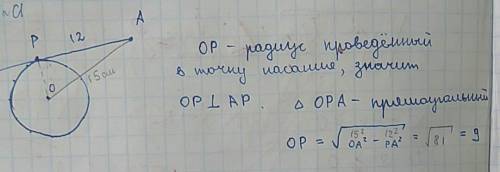 a
P 12 A
15 см
O
OP - радиус проведённый
в точку касание, значит
OP ⊥ AP. △ OPA - прямоугольний
OP = √(15² OA² - 12² PA²) = √81 = 9